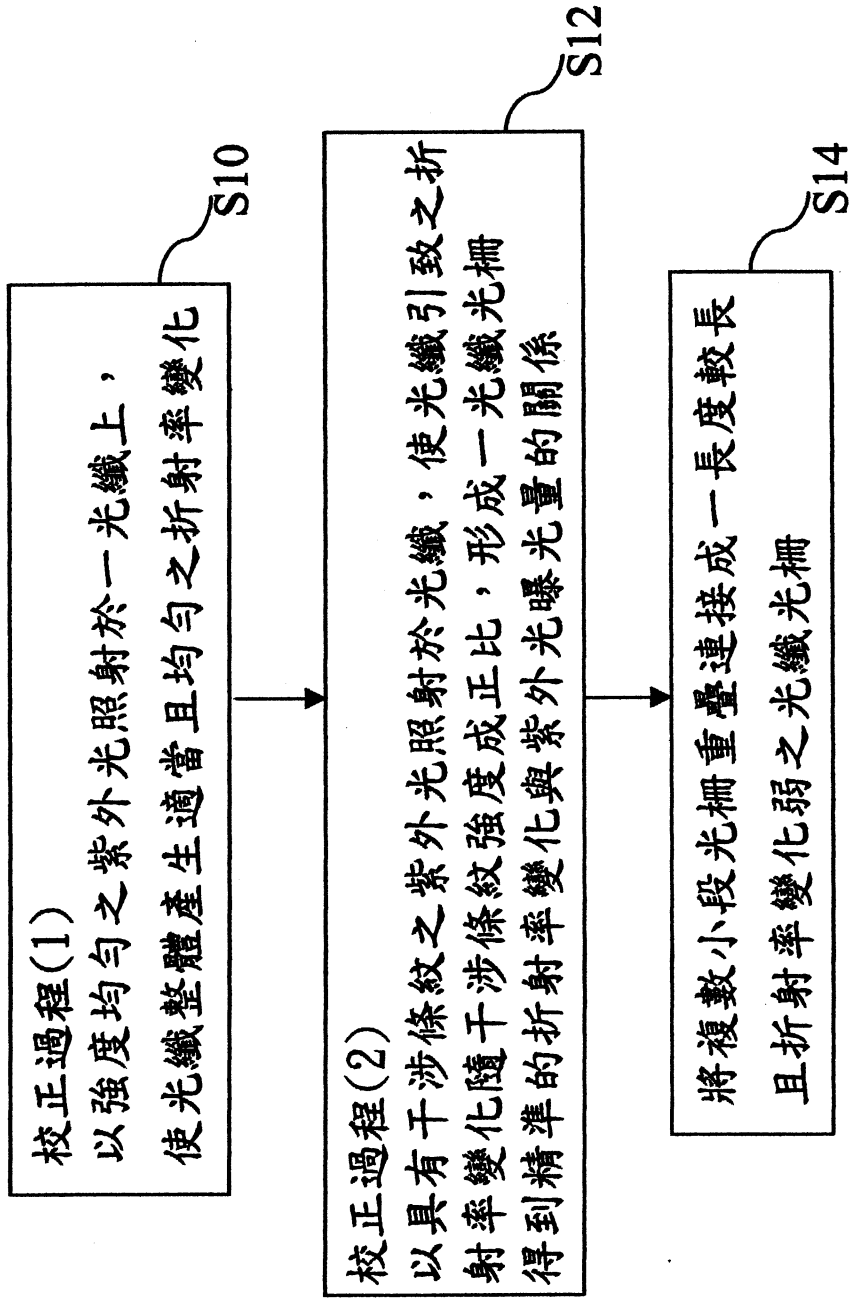 校正過程(1)
以強度均勻之紫外光照射於一光纖上，
使光纖整體產生適當且均勻之折射率變化
S10
校正過程(2)
以具有干涉條紋之紫外光照射於光纖，使光纖引致之折
射率變化隨干涉條紋強度成正比，形成一光纖光柵
得到精準的折射率變化與紫外光曝光量的關係
S12
將複數小段光柵重疊連接成一長度較長
且折射率變化弱之光纖光柵
S14